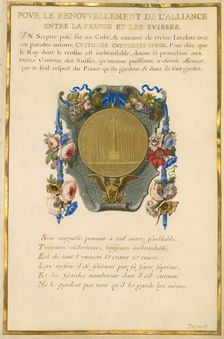 POUR LE RENOUVELLEMENT DE L'ALLIANCE
ENTRE LA FRANCE ET LES SUISSES.
UN Sceptre posé sur un Cube, & entouré de treize Javelots avec
ces paroles autour, CUSTODES CUSTODIT Pour dire que
le Roy dont la est inébranlable, donne sa protection aux
treize Cantons des Suisses, qu'aucune puissance n'oseroit offencer,
par le seul respect du Prince qu'ils gardent & dont ils sont gardez.
Son auguste pouvoir à nul autre semblable,
Toujours victorieux, toujours inébranlable,
Est de tout l'univers & craint & reveré;
Luy mesme il se soûtient par sa force suprême,
Et les Gardes nombreux dont il est entouré
Ne le gardent pas tant qu'il les garde luy mesme.